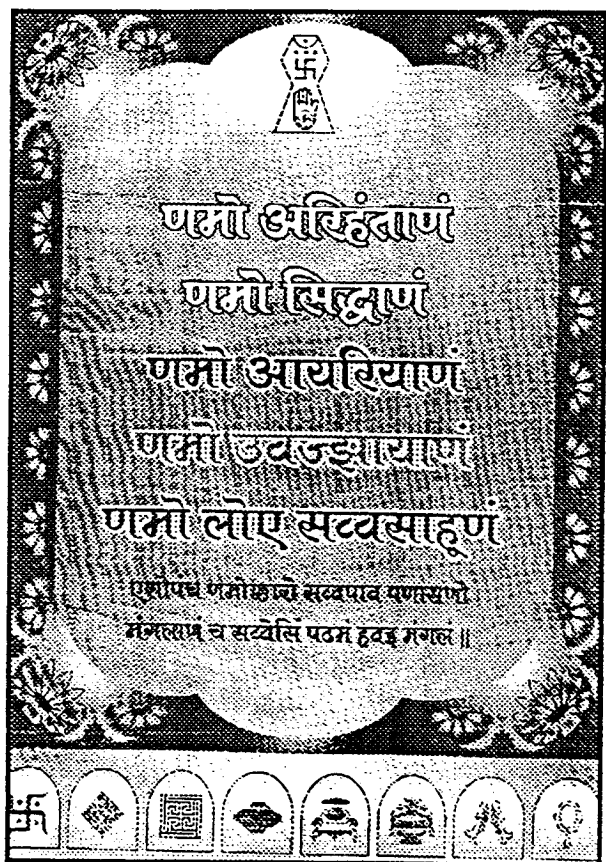 णमो अरिहंताणं
णमो सिद्धाणं
णमो आयरियाणं
णमो उवज्झायाणं
णमो लोए सव्वसाहूणं
एसोपंच णमोक्कारो सव्वपाव पणासणो
मंगलाणं च सव्वेसिं पढमं हवइ मंगलं॥